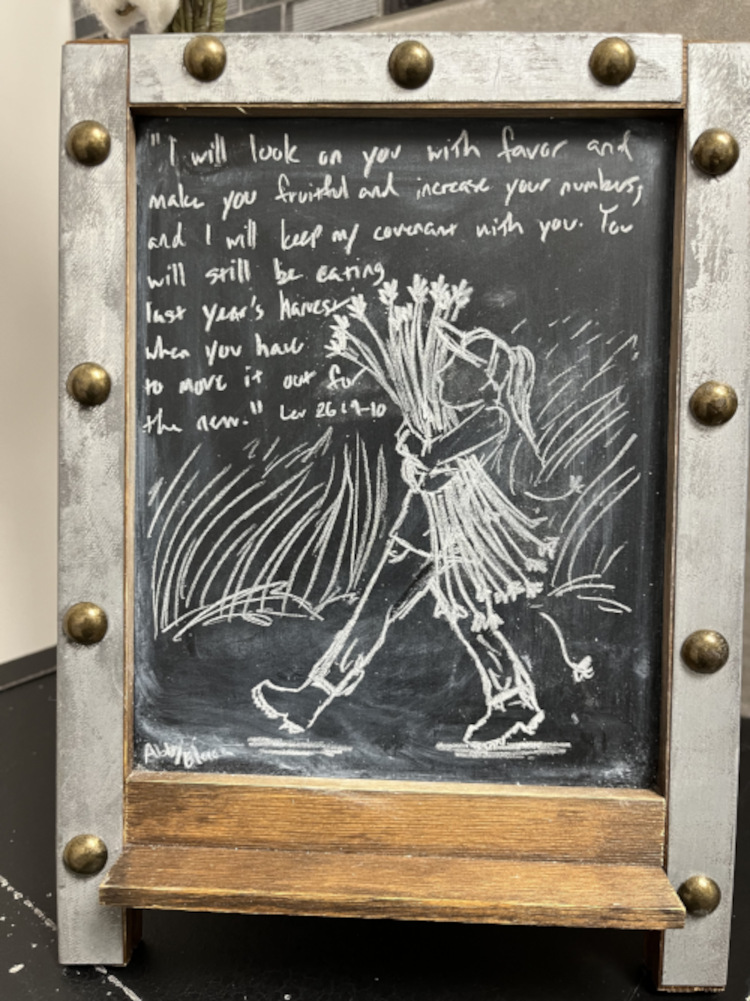 "I will look on you with favor and
make you fruitful and increase your numbers,
and I will keep my covenant with you. You
will still be eating
last year's harvest
when you have
to move it out for
the new." Lev 26:9-10
Abby